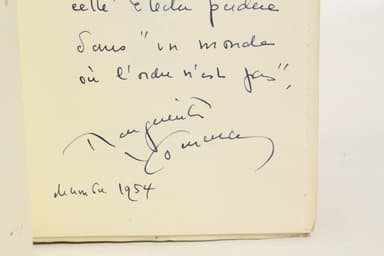 cette Electre perdue
dans "un monde
où l'ordre n'est pas",
Marguerite
Yourcenar
décembre 1954